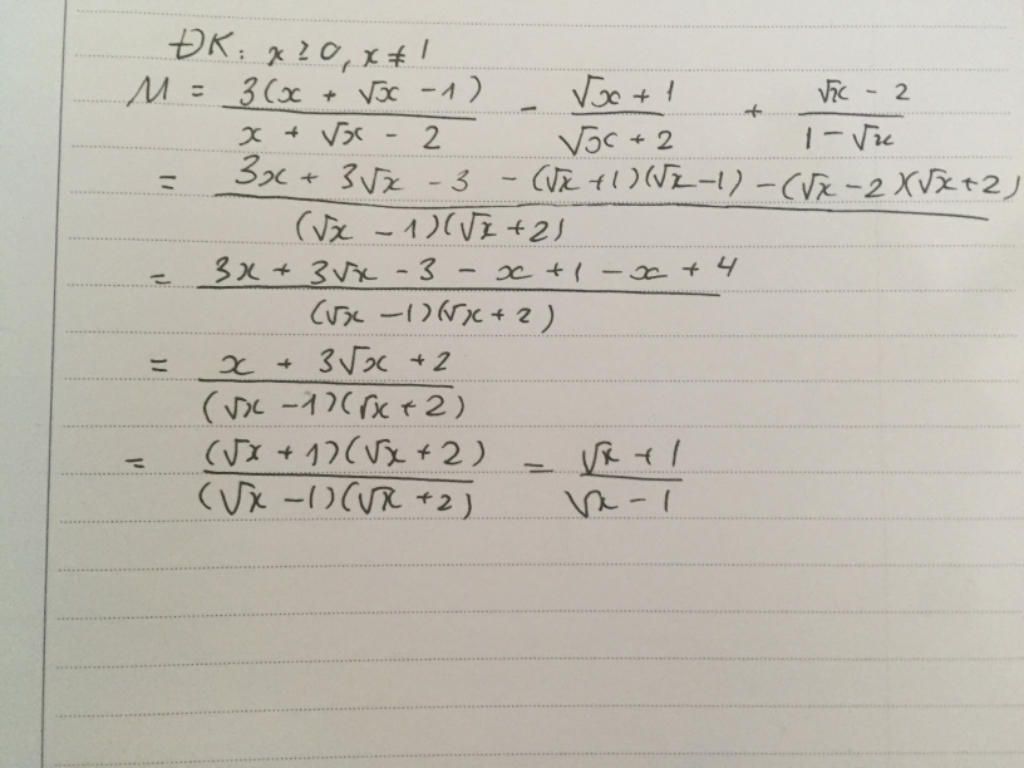 ĐK: x ≥ 0, x ≠ 1
M = \frac{3(x + √x - 1)}{x + √x - 2} - \frac{√x + 1}{√x + 2} + \frac{√x - 2}{1 - √x}
= \frac{3x + 3√x - 3 - (√x + 1)(√x - 1) - (√x - 2)(√x + 2)}{(√x - 1)(√x + 2)}
= \frac{3x + 3√x - 3 - x + 1 - x + 4}{(√x - 1)(√x + 2)}
= \frac{x + 3√x + 2}{(√x - 1)(√x + 2)}
= \frac{(√x + 1)(√x + 2)}{(√x - 1)(√x + 2)} = \frac{√x + 1}{√x - 1}